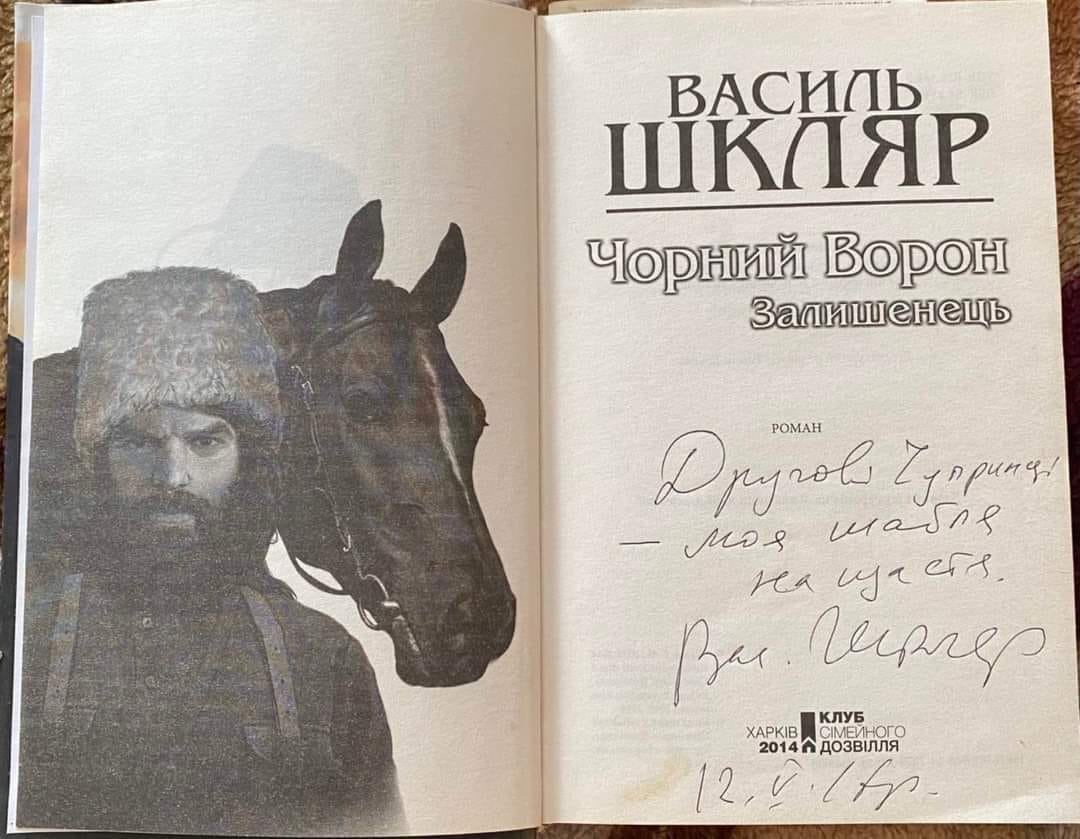 ВАСИЛЬ
ШКЛЯР
Чорний Ворон
Залишенець
РОМАН
Другові Чупринці
– моя шабля
на щастя.
Вас. Шкляр
ХАРКІВ КЛУБ
СІМЕЙНОГО
2014 ДОЗВІЛЛЯ
12.V.